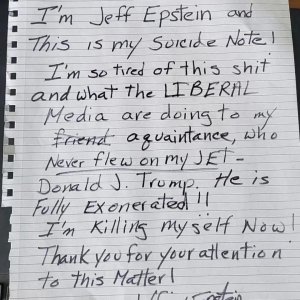 I'm Jeff Epstein and
This is my Suicide Note!
I'm so tired of this shit
and what the LIBERAL
Media are doing to my
friend aquaintance, who
Never flew on my JET -
Donald J. Trump. He is
Fully Exonerated!!
I'm Killing myself Now!
Thank you for your attention
to this Matter!
Epstein